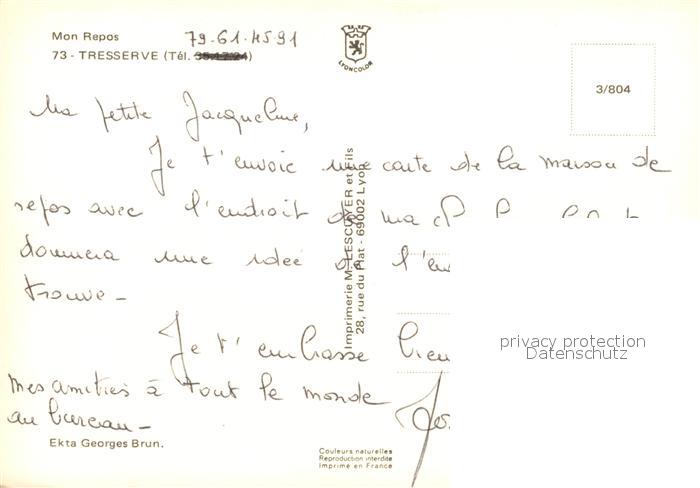 Mon Repos 79-61-45 91
73 - TRESSERVE (Tél. 35.17.24)
LYONCOLOR
3/804
Ma petite Jacqueline,
Je t'envoie une carte de la maison de
repos avec l'endroit de ma
donnera une idée de l'en
trouve -
Je t'embrasse bien
mes amitiés à tout le monde
au bureau -
Jo.
Imprimerie M. LESCUYER et Fils
28, rue du Plat - 69002 Lyon
privacy protection
Datenschutz
Ekta Georges Brun.
Couleurs naturelles
Reproduction interdite
Imprimé en France